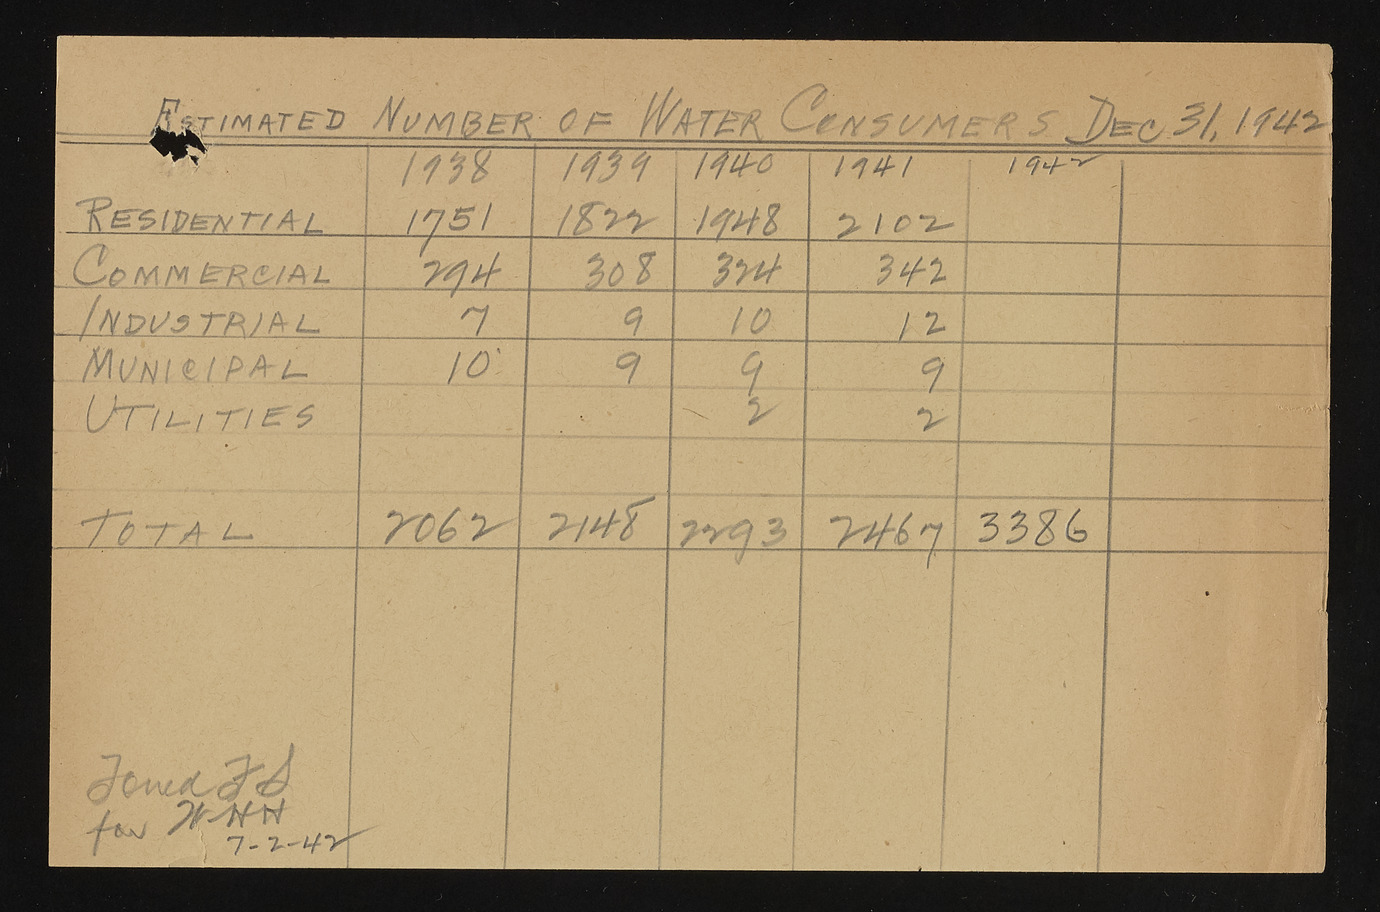 ESTIMATED NUMBER OF WATER CONSUMERS DEC 31, 1942
1938 1939 1940 1941 1942
RESIDENTIAL 1751 1822 1948 2102
COMMERCIAL 294 308 324 342
INDUSTRIAL 7 9 10 12
MUNICIPAL 10 9 9 9
UTILITIES 2 2
TOTAL 2062 2148 2293 2467 3386
FS
for W-HH
7-2-42